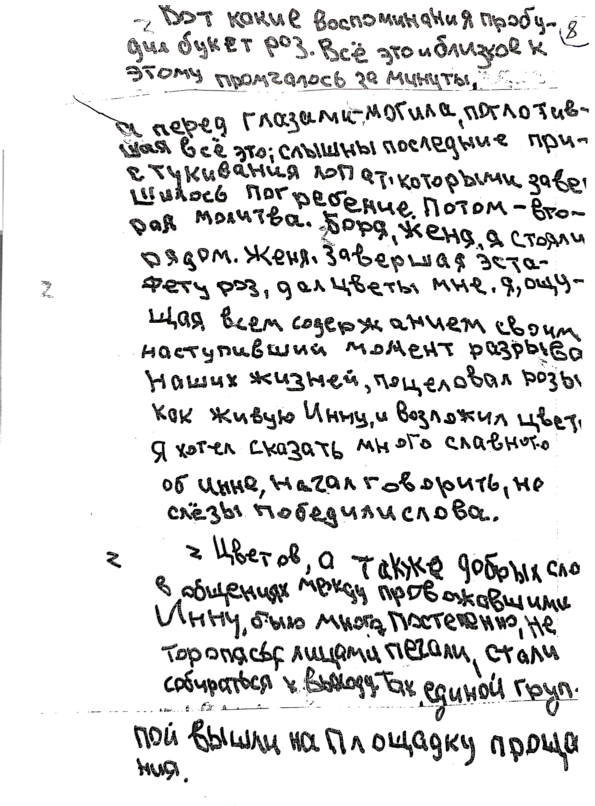 z Вот какие воспоминания пробу- 8
дил букет роз. Всё это и близкое к
этому промчалось за минуты,
а перед глазами – могила, поглотив-
шая всё это; слышны последние при-
стукивания лопат, которыми завер
шилось погребение. Потом – вто-
рая молитва. Боря, Женя, я стояли
рядом. Женя, завершая эста-
z фету роз, дал цветы мне. Я, ощу-
щая всем содержанием своим
наступивший момент разрыва
наших жизней, поцеловал розы
как живую Инну, и возложил цвет
Я хотел сказать много славного
об Инне, начал говорить, но
слёзы победили слова.
z z Цветов, а также добрых сло
в общениях между провожавшими
Инну, было много. Постепенно, не
торопясь, с лицами печали, стали
собираться к выходу. Так, единой груп-
пой вышли на Площадку проща
ния.